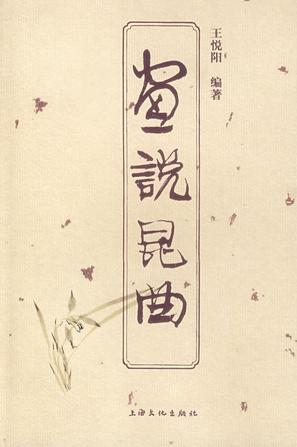 王悦阳 编著
畫說昆曲
上海文化出版社